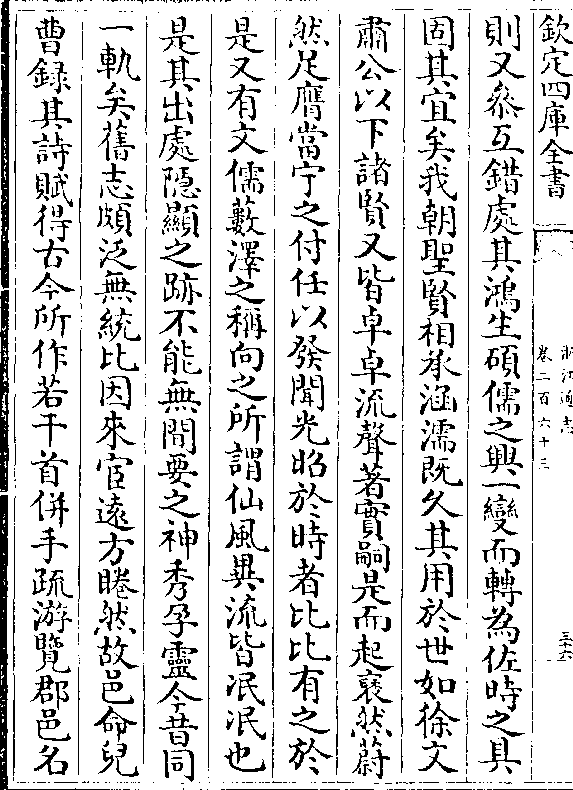 欽定四庫全書
浙江通志
卷二百六十三
三十六
則又叅互錯處其鴻生碩儒之興一變而轉為佐時之具
固其宜矣我朝聖賢相承涵濡既久其用於世如徐文
肅公以下諸賢又皆卓卓流聲著實嗣是而起裒然蔚
然足膺當宁之付任以發聞光昭於時者比比有之於
是又有文儒藪澤之稱向之所謂仙風異流皆泯泯也
是其出處隱顯之跡不能無間要之神秀孕靈今昔同
一軌矣舊志頗泛無統比因來宦遠方睠然故邑命兒
曹録其詩賦得古今所作若干首併手疏游覽郡邑名